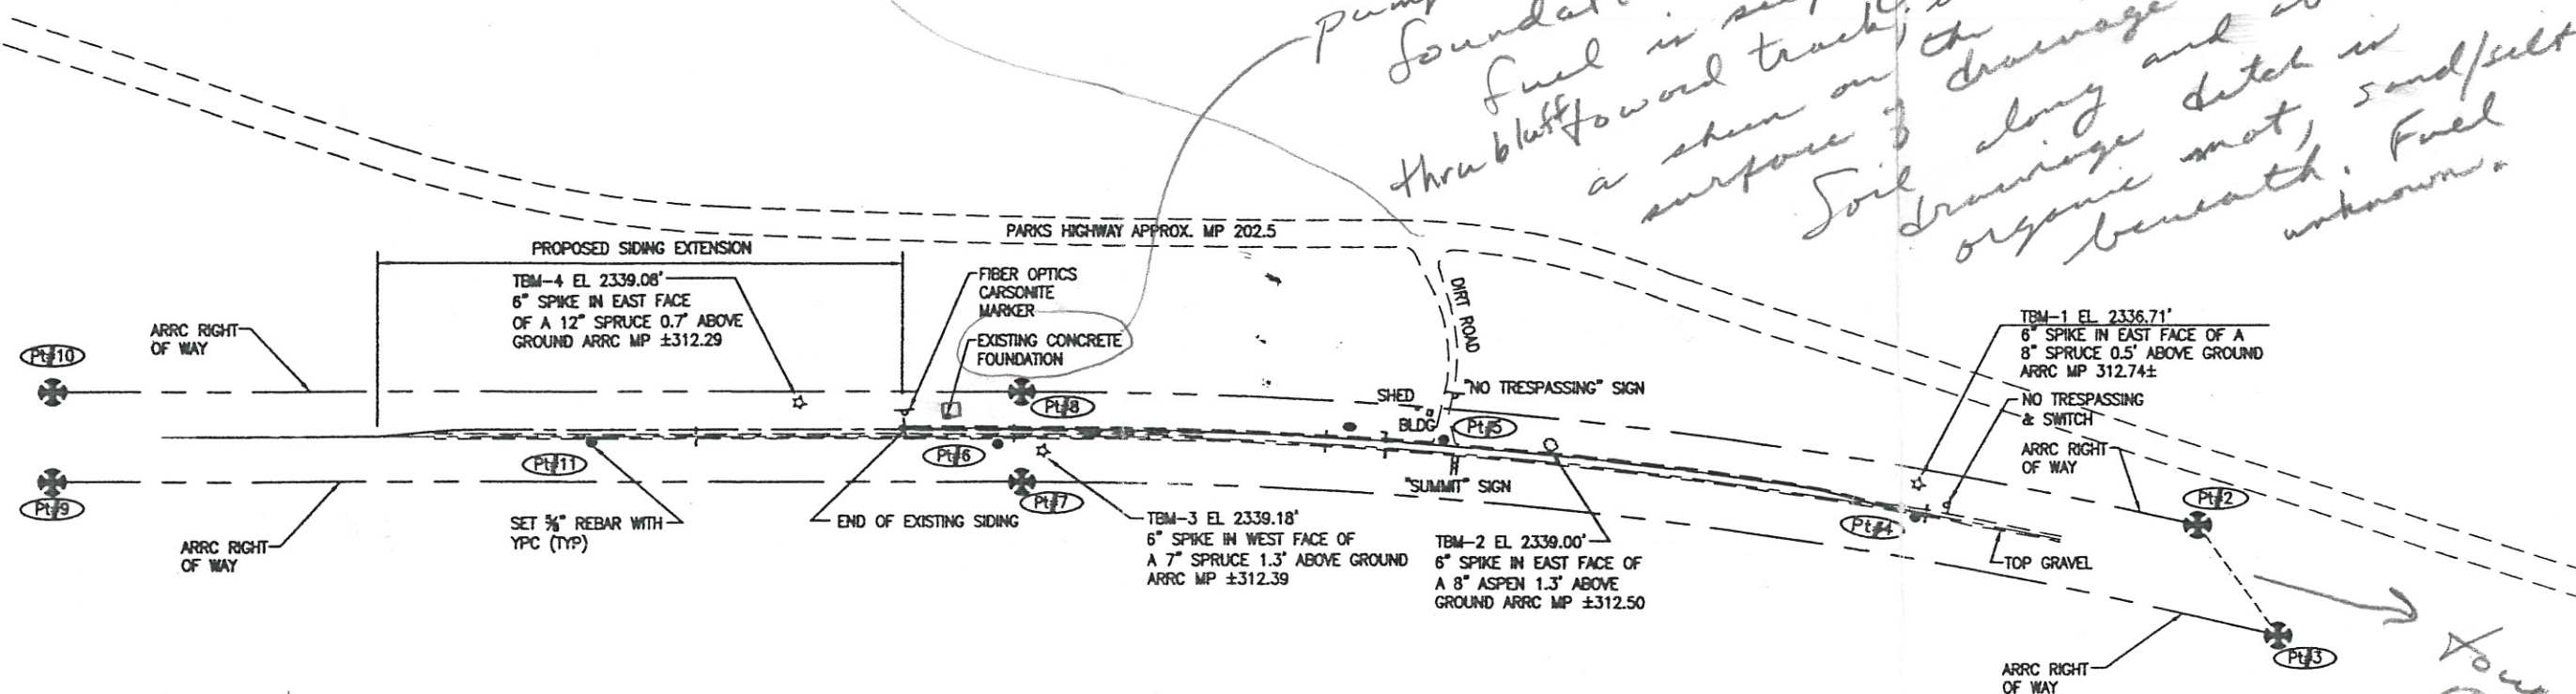 pump
foundat
fuel is
thru bluff toward track,
a sheen on the
surface of drainage
Soil along and
drainage ditch is
organic mat, sand/silt
beneath. Fuel
unknown.
PARKS HIGHWAY APPROX. MP 202.5
PROPOSED SIDING EXTENSION
TBM-4 EL 2339.08'
6" SPIKE IN EAST FACE
OF A 12" SPRUCE 0.7' ABOVE
GROUND ARRC MP ±312.29
FIBER OPTICS
CARSONITE
MARKER
EXISTING CONCRETE
FOUNDATION
DIRT ROAD
TBM-1 EL 2336.71'
6" SPIKE IN EAST FACE OF A
8" SPRUCE 0.5' ABOVE GROUND
ARRC MP 312.74±
NO TRESPASSING
& SWITCH
ARRC RIGHT
OF WAY
ARRC RIGHT
OF WAY
Pt#10
SHED
"NO TRESPASSING" SIGN
BLDG
Pt#8
Pt#5
Pt#11
Pt#6
"SUMMIT" SIGN
Pt#9
Pt#7
Pt#2
Pt#4
SET ⅝" REBAR WITH
YPC (TYP)
END OF EXISTING SIDING
TBM-3 EL 2339.18'
6" SPIKE IN WEST FACE OF
A 7" SPRUCE 1.3' ABOVE GROUND
ARRC MP ±312.39
TBM-2 EL 2339.00'
6" SPIKE IN EAST FACE OF
A 8" ASPEN 1.3' ABOVE
GROUND ARRC MP ±312.50
TOP GRAVEL
ARRC RIGHT
OF WAY
Pt#3
ARRC RIGHT
OF WAY